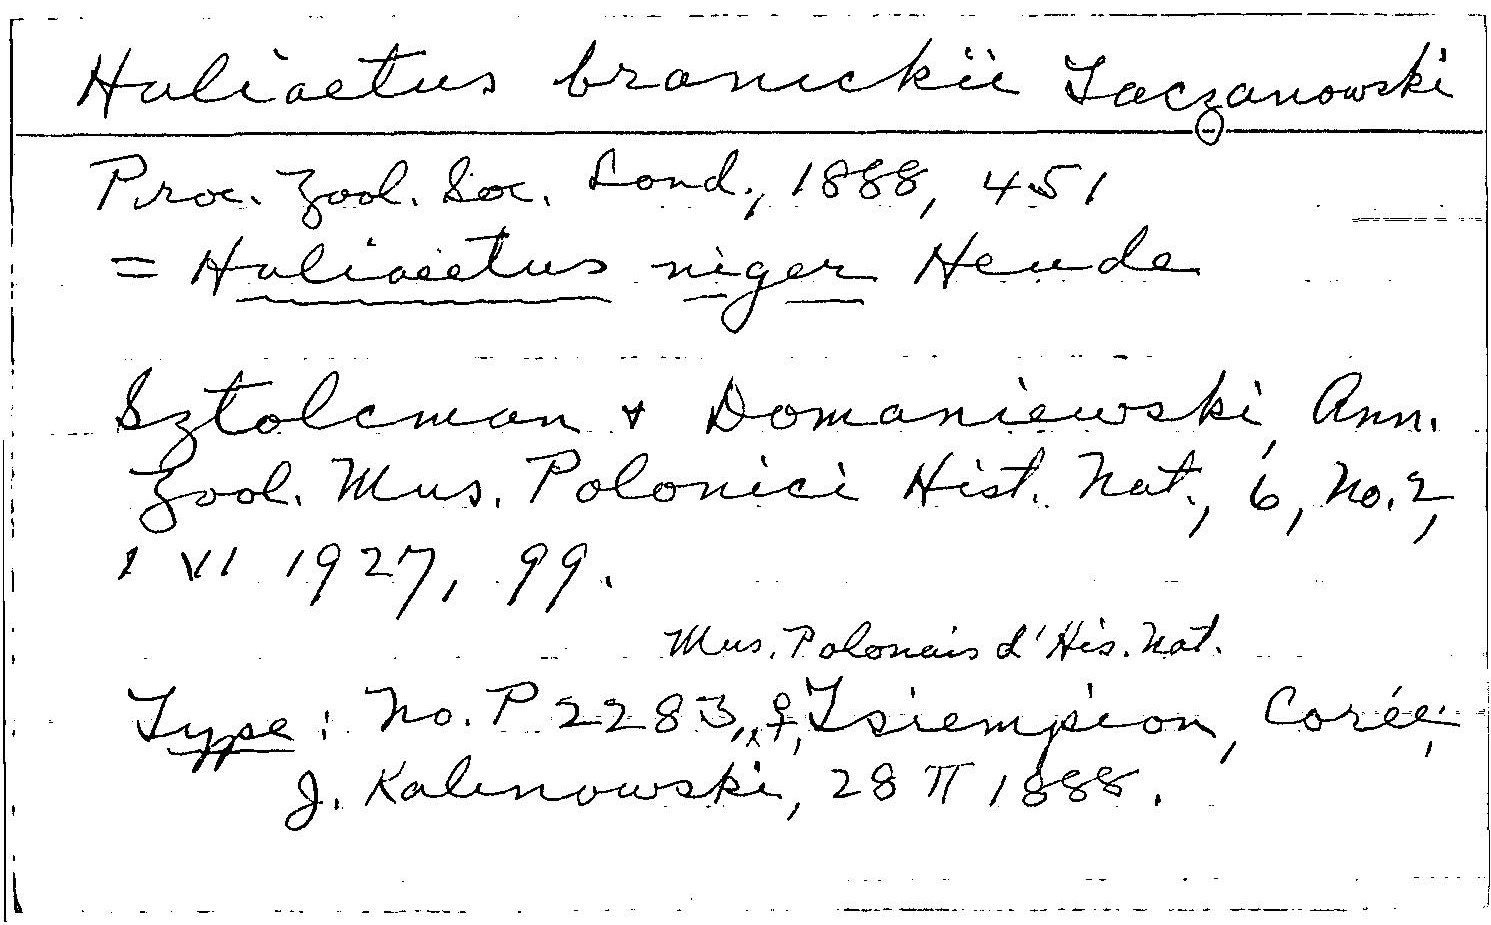 Haliaetus branickii Taczanowski
Proc. Zool. Soc. Lond., 1888, 451
= Haliaeetus niger Heude
Sztolcman & Domaniewski, Ann.
Zool. Mus. Polonici Hist. Nat., 6, No. 2,
1 VI 1927, 99.
Mus. Polonais d'His. Nat.
Type: No. P 2283, ♀, Tsiempion, Corée,
J. Kalinowski, 28 II 1888.